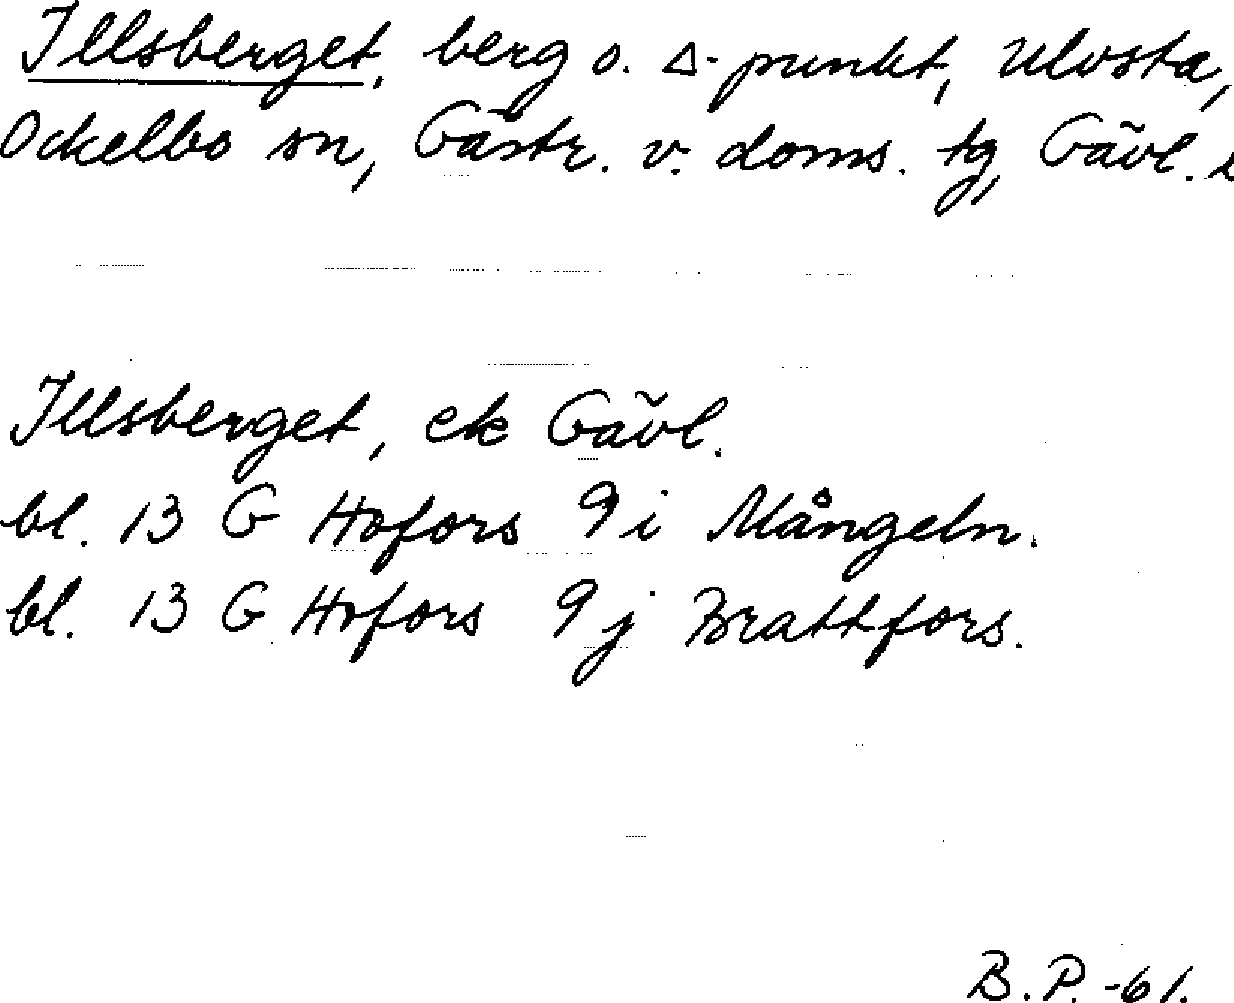 Illsberget, berg o. △-punkt, Ulvsta,
Ockelbo sn, Gästr. v. doms. tg, Gävl.
Illsberget, ek Gävl.
bl. 13 G Hofors 9 i Mångeln.
bl. 13 G Hofors 9 j Brattfors.
B.P. -61.